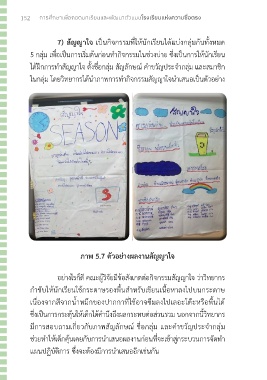 152 การศึกษาเพื่อถอดบทเรียนและพัฒนาตัวแบบโรงเรียนแห่งความซื่อตรง
7) สัญญาใจ เป็นกิจกรรมที่ให้นักเรียนได้แบ่งกลุ่มกันทั้งหมด
5 กลุ่ม เพื่อเป็นการเริ่มต้นก่อนทำกิจกรรมในช่วงบ่าย ซึ่งเป็นการให้นักเรียน
ได้ฝึกการทำสัญญาใจ ตั้งชื่อกลุ่ม สัญลักษณ์ คำขวัญประจำกลุ่ม และสมาชิก
ในกลุ่ม โดยวิทยากรได้นำภาพการทำกิจกรรมสัญญาใจนำเสนอเป็นตัวอย่าง
สัญญาใจ
SEASON
S
สัญญาใจ
ภาพ 5.7 ตัวอย่างผลงานสัญญาใจ
อย่างไรก็ดี คณะผู้วิจัยมีข้อสังเกตต่อกิจกรรมสัญญาใจ ว่าวิทยากร
กำชับให้นักเรียนใช้กระดาษรองพื้นสำหรับเขียนเนื้อหาลงไปบนกระดาษ
เนื่องจากสีจากน้ำหมึกของปากกาที่ใช้อาจซึมลงไปเลอะโต๊ะหรือพื้นได้
ซึ่งเป็นการกระตุ้นให้เด็กได้คำนึงถึงผลกระทบต่อส่วนรวม นอกจากนี้วิทยากร
มีการสอบถามเกี่ยวกับภาพสัญลักษณ์ ชื่อกลุ่ม และคำขวัญประจำกลุ่ม
ช่วยทำให้เด็กคุ้นเคยกับการนำเสนอผลงานก่อนที่จะเข้าสู่กระบวนการจัดทำ
แผนปฏิบัติการ ซึ่งจะต้องมีการนำเสนออีกเช่นกัน